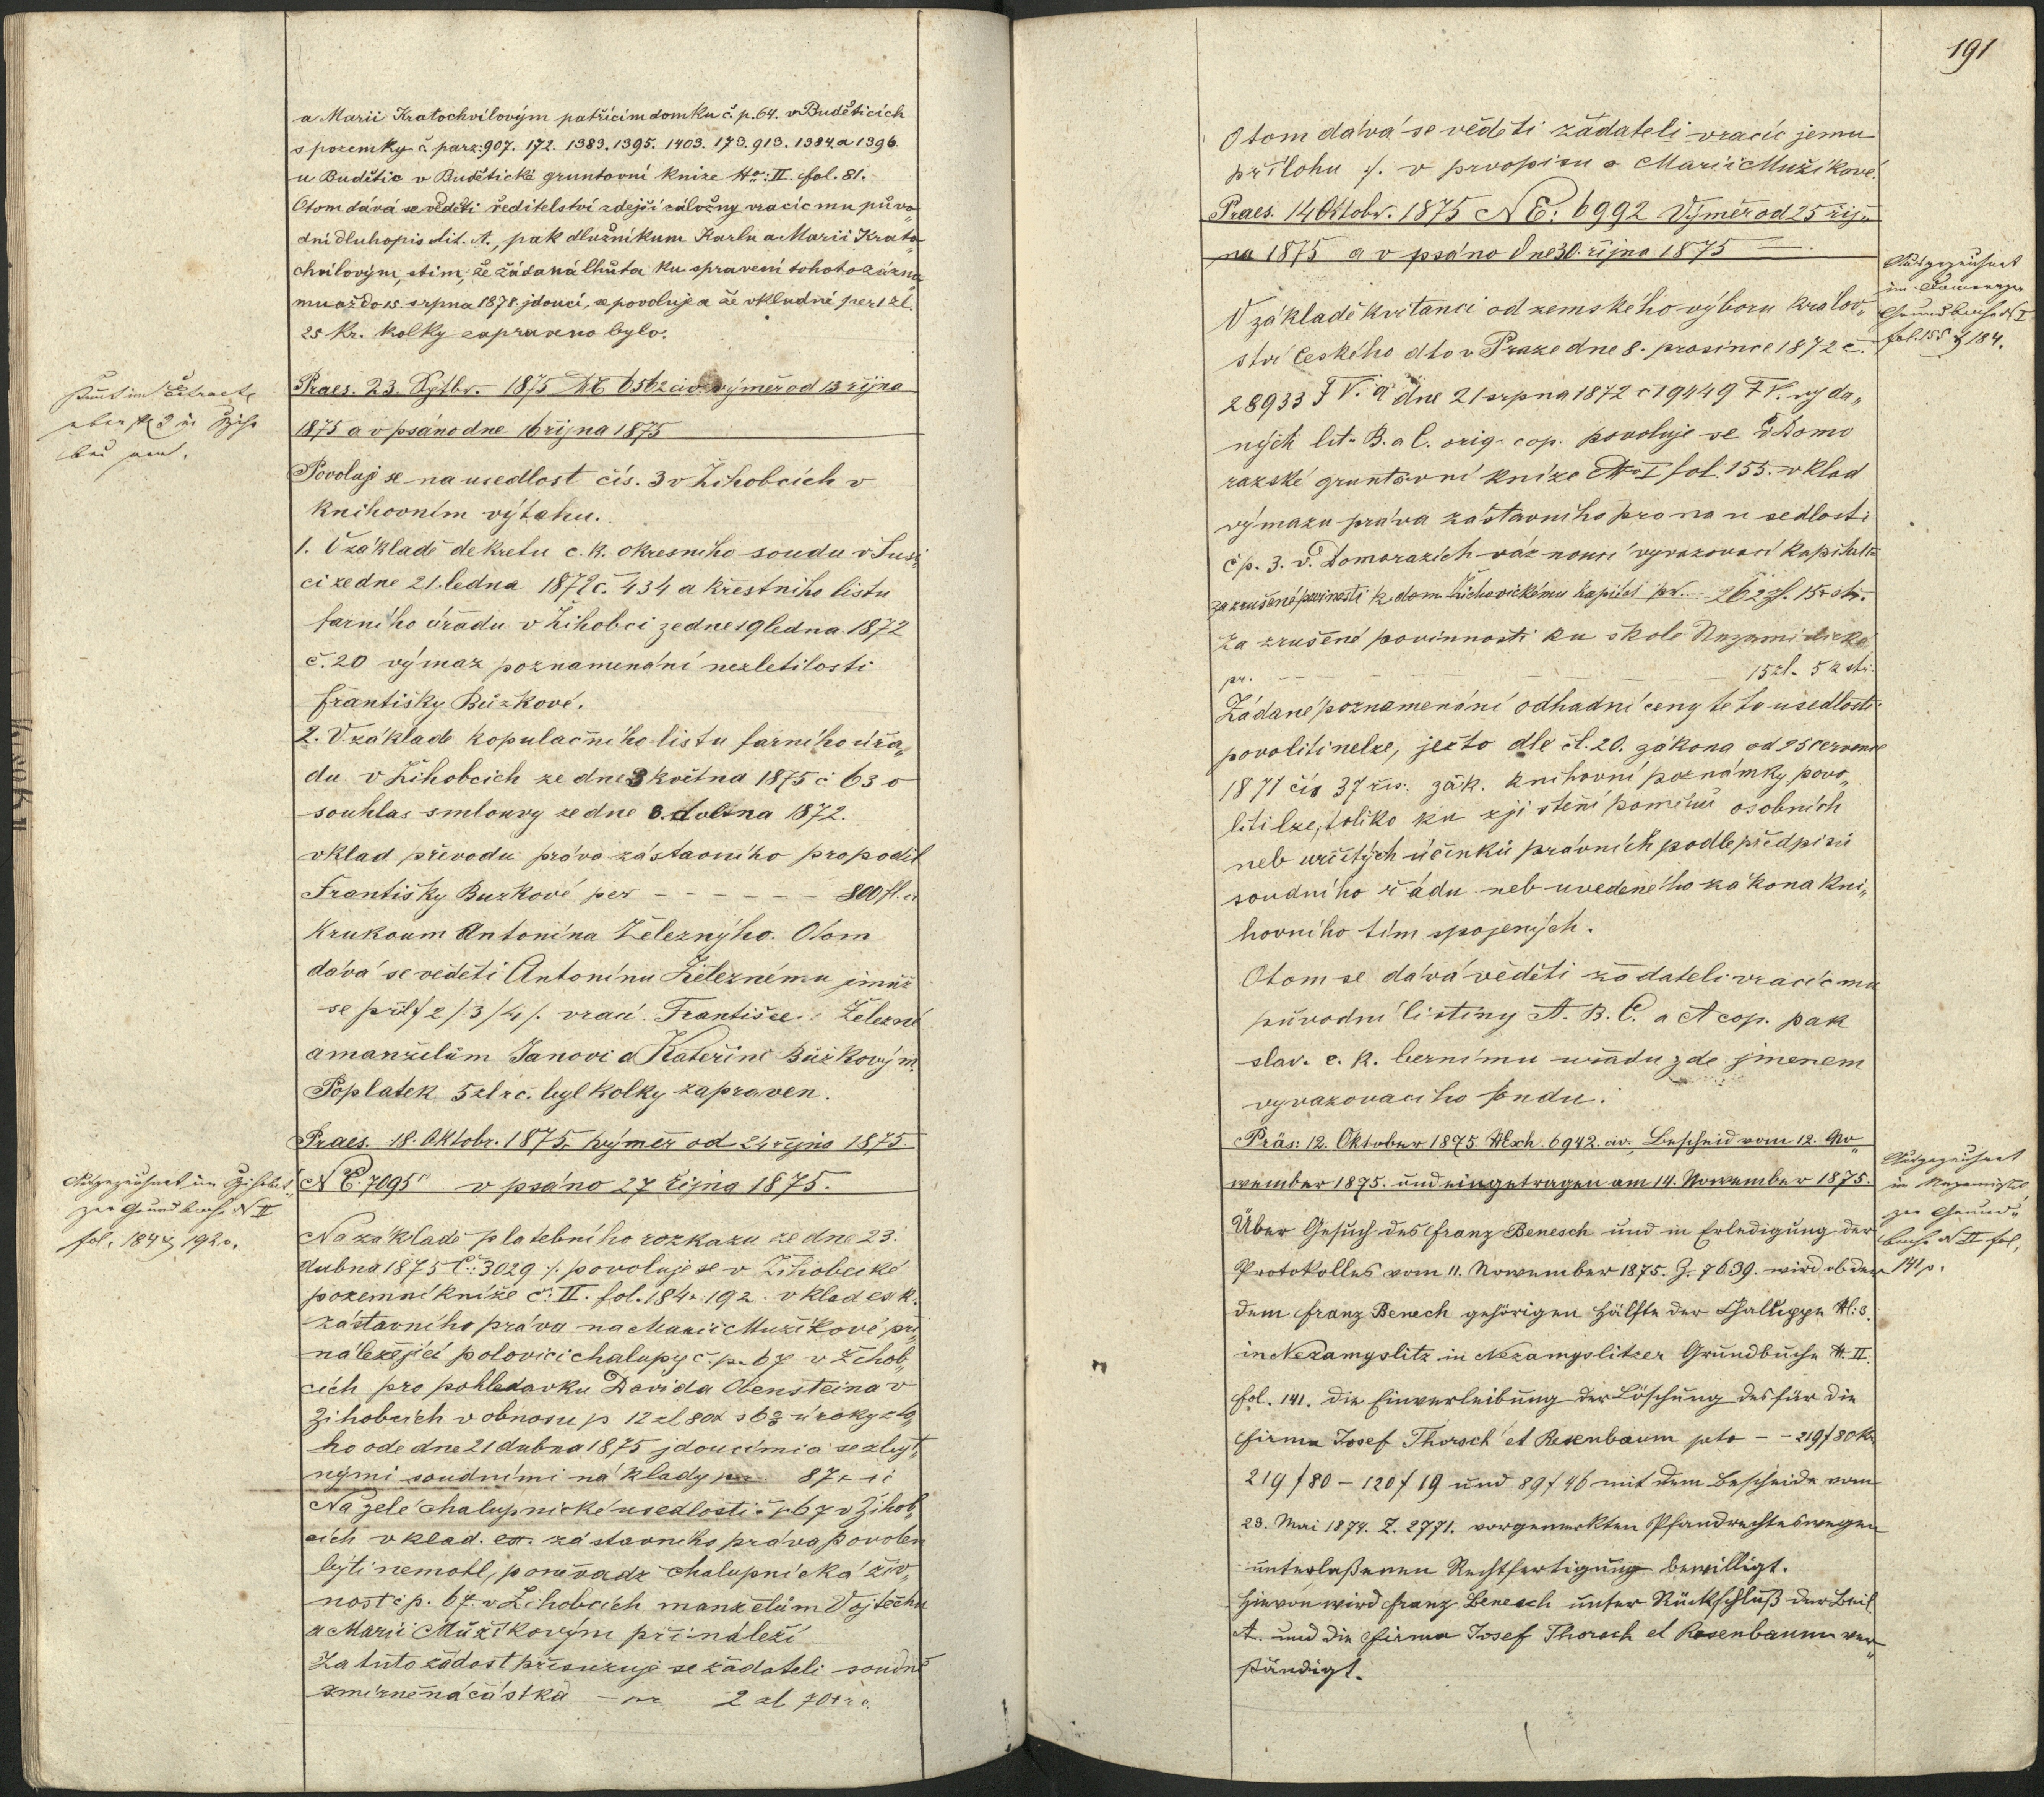 a Marii Kratochvílovým patřícím domku č. p. 64. v Buděticích
s pozemky č. parz: 907. 172. 1383. 1395. 1403. 173. 913. 1384. a 1396.
u Budětic v Budětické gruntovní knize No: II. fol. 81.
O tom dává se věděti ředitelství zdejší záložny vracíc mu půvo„
dní dluhopis lit. A., pak dlužníkum Karlu a Marii Krato„
chvílovým, s tím, že žádaná lhůta ku spravení tohoto zázna„
mu až do 15. srpna 1878. jdoucí, se povoluje a že vkladné per 1 zl.
25 kr. kolky zapraveno bylo.
Praes. 23. Septbr. 1875 NE 6562 civ. výměr od 13 října
1875 a v psáno dne 16 října 1875
Povoluje se na usedlost čís. 3 v Žihobcích v
knihovním výtahu.
1. V základě dekretu c. k. okresního soudu v Suši„
ci ze dne 21. ledna 1872 č. 434 a křestního listu
farního úřadu v Žihobci ze dne 19 ledna 1872
č. 20 výmaz poznamenání nezletilosti
Františky Bůzkové.
2. V základě kopulačního listu farního úřa„
du v Žihobcích ze dne 3 května 1875 č 63 o
souhlas smlouvy ze dne 8. dubna 1872.
vklad převodu práva zástavního pro podíl
Františky Buzkové per - - - - - - 800 fl. a
k rukoum Antonína Železnýho. O tom
dává se věděti Antonínu Železnému jemuž
se příl 1/ 2/ 3/ 4/. vrací Františce Železné
a manželům Janovi a Kateřině Bůzkovým.
Poplatek 5 zl r. č. byl kolky zapraven.
Praes. 18. Oktobr. 1875 výměr od 24 října 1875
N E. 7095 v psáno 27 října 1875.
Na základě platebního rozkazu ze dne 23.
dubna 1875 č: 3029 ·/. povoluje se v Žihobecké
pozemní knize č. II. fol. 184 & 192. vklad exk.
zástavního práva na Marii Mužíkové při„
náležející polovici chalupy č. p. 67 v Žihob„
cích pro pohledavku Davida Obensteina v
Žihobcích v obnosu p 12 zl 80 x s 6% úroky z to„
ho ode dne 21 dubna 1875 jdoucími a se zbyt„
nými soudními náklady pr. 87 x r č
Na zelé chalupnické usedlosti č p 67 v Žihob„
cích vklad. ex. zástavního práva povolen
býti nemohl, poněvadž chalupnická živ„
nost č p. 67. v Žihobcích manželům Vojtěchu
a Marii Mužíkovým přináleží
Za tuto žádost přisuzuje se žádateli soudně
zmírněná částka pr 2 zl 70 x r č.
191
O tom dává se věděti žádateli vracíc jemu
přílohu ·/. v prvopisu a Marii Mužíkové.
Praes. 14 Oktobr. 1875 N E: 6992 Výměr od 25 říj„
na 1875 a v psáno dne 30. října 1875
V základě kvitanci od zemského výboru králov„
ství českého dto v Praze dne 8. prosince 1872 č.
28933 F V. a dne 21 srpna 1872 č 19449 F V. vyda„
ných lit. B. a C. orig. cop. povoluje se v Domo
razské gruntovní knize No I fol. 155. vklad
výmazu práva zástavního pro na usedlosti
č p. 3. v. Domorazích váznoucí vyvazovací kapitál
za zrušené povinosti k dom. Žichovickému kapitol pr. 262 zl. 15 x stř.
za zrušené povinnosti ku škole Nezamislické
pr. - - - - - - - - 15 zl. 5 x stř.
Žádané poznamenání odhadní ceny této usedlosti
povoliti nelze, ježto dle čl. 20. zákona od 25 července
1871 čís 37 řís. zák. knihovní poznámky povo„
liti lze, toliko ku zjištění poměrů osobních
neb určitých účinků právních podle předpisů
soudního řádu neb uvedeného zákona kni„
hovního tím spojených.
O tom se dává věděti žadateli vracíc mu
původní listiny A. B. C. a A cop. pak
slav. c. k. bernímu uřadu zde jmenem
vyvazovacího fondu.
Präs: 12. Oktober 1875. Nxh. 6942. civ. Bescheid vom 12. No„
wember 1875. und eingetragen am 14. Nowember 1875.
Über Gesuch des Franz Benesch und in Erledigung der
Protokolles vom 11. Nowember 1875. Z. 7639. wird ob der
dem Franz Benech gehörigen Hälfte der Challuppe N: 3.
in Nezamyslitz in Nezamyslitzer Grundbuche N. II.
fol. 141. die Einverleibung der Löschung des für die
Firma Josef Thorsch et Rosenbaum pto - - 219 f 80 kr
219 f 80 - 120 f 19 und 89 f 46 mit dem Bescheide vom
23. Mai 1874. Z. 2771. vorgemerkten Pfandrechtes wegen
unterlaßenen Rechtfertigung bewilligt.
Hievon wird Franz Benesch unter Rückschluß der Beil.
A. und die Firma Josef Thorsch et Rosenbaum ver„
ständigt.
Ausgezeichnet im Žihobet„
zer Grundbuche N II
fol. 184 & 192.
Ausgezeichnet
im Damorazer
Grundbuche N I
fol. 155 & 184.
Ausgezeichnet
in Nezamislit
zer Grund„
buche N II fol.
141 p.